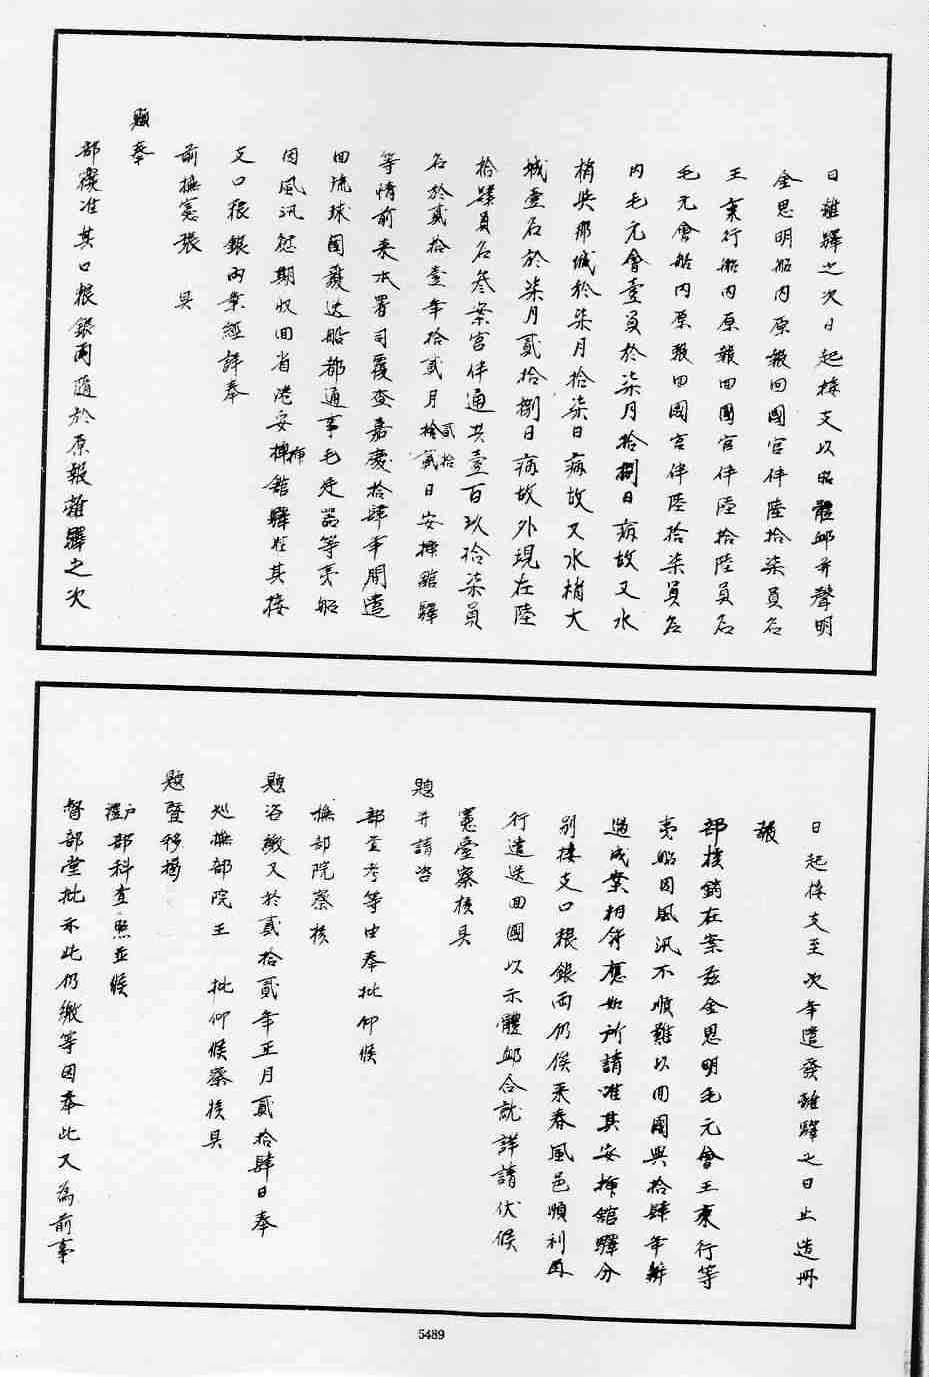 日離驛之次日起接支以昭體卹并聲明
金思明船內原報回國官伴陸拾柒員名
王秉行船內原報回國官伴陸拾陸員名
毛元會船內原報回國官伴陸拾柒員名
內毛元會壹員於柒月拾捌日病故又水
梢與那城於柒月拾柒日病故又水梢大
城壹名於柒月貳拾捌日病故外現在陸
拾肆員名叁案官伴通共壹百玖拾柒員
名於貳拾壹年拾貳月貳拾貳日安插館驛
等情前來本署司覆查嘉慶拾肆年間遣
回流球國護送船都通事毛廷器等夷船
因風汛愆期收回省港安插館驛經其接
支口粮銀兩業經詳奉
前撫憲張 具
題奉
部覆准其口粮銀兩通於原報離驛之次
日起接支至次年遣發離驛之日止造冊
報
部核銷在案茲金思明毛元會王秉行等
夷船因風汛不順難以回國與拾肆年辦
過成案相符應如所請准其安插館驛分
別接支口粮銀兩仍俟來春風色順利再
行遣送回國以示體卹合就詳請伏候
憲臺察核具
題并請咨
部查考等由奉批仰候
撫部院察核
題咨繳又於貳拾貳年正月貳拾肆日奉
廵撫部院王 批仰候察核具
題暨移揭
戶禮部科查照並候
督部堂批示此仍繳等因奉此又為前事
5489